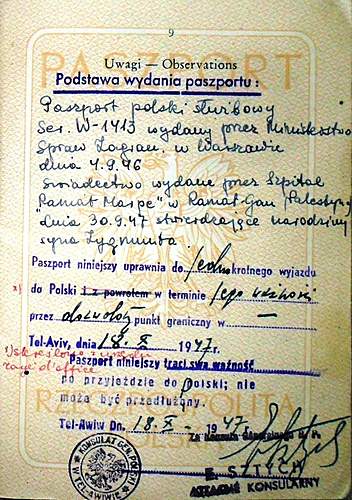 9
Uwagi — Observations
Podstawa wydania paszportu:
Paszport polski służbowy
Ser. W-1413 wydany przez Ministerstwo
Spraw Zagran. w Warszawie
dnia 4.9.46
świadectwo wydane przez Szpital
"Ramat Marpe" w Ramat Gan (Palestyna)
dnia 30.9.47 stwierdzające narodziny
syna Zygmunta.
Paszport niniejszy uprawnia do jednokrotnego wyjazdu
x) do Polski i z powrotem w terminie jego ważności
przez dowolny punkt graniczny w —
Tel-Aviv, dnia 18. X 1947 r.
x) skreślono z urzędu
rayé d'office
Paszport niniejszy traci swą ważność
po przyjeździe do Polski; nie
może być przedłużony.
Tel-Awiw Dn. 18. X- 1947 r.
Za Konsula Generalnego R. P.
E. SZTYCH
ATTACHÉ KONSULARNY
KONSULAT GEN. POLSKI
W TEL-AWIWIE
PASZPORT